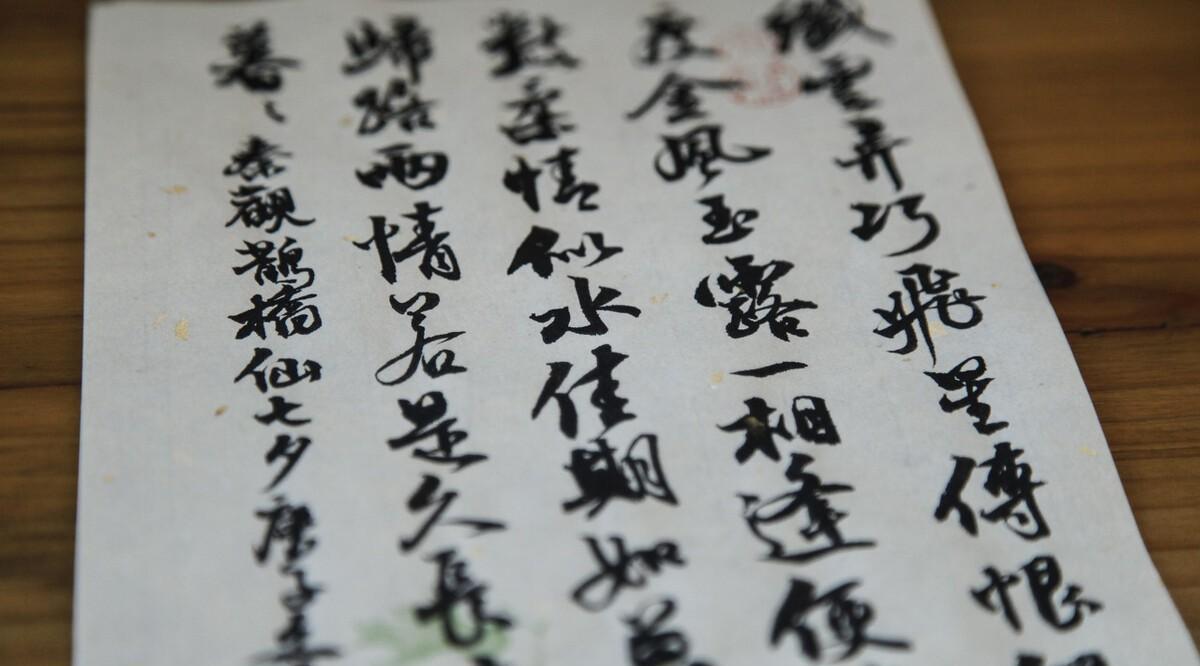 纖雲弄巧飛星傳恨
度金風玉露一相逢便
數柔情似水佳期如
歸路兩情若是久長
暮〻秦觀鵲橋仙七夕庚子